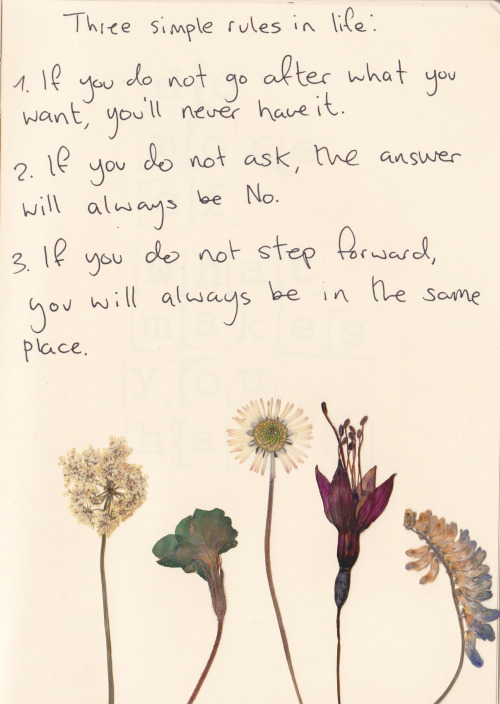 Three simple rules in life:
1. If you do not go after what you
want, you'll never have it.
2. If you do not ask, the answer
will always be No.
3. If you do not step forward,
you will always be in the same
place.